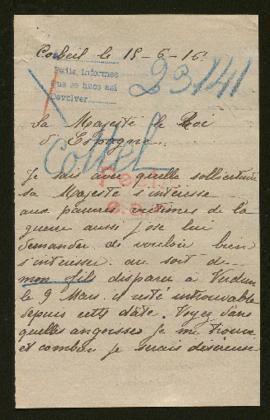 Corbeil le 15-6-16
23.141
Sa Majesté le Roi
d'Espagne
Je sais avec quelle sollicitude
sa Majesté s'intéresse
aux pauvres victimes de la
guerre aussi j'ose lui
demander de vouloir bien
s'intéresser au sort de
mon fils disparu à Verdun
le 9 Mars et resté introuvable
depuis cette date. Voyez dans
quelles angoisses je me trouve
et combien je serais désireuse